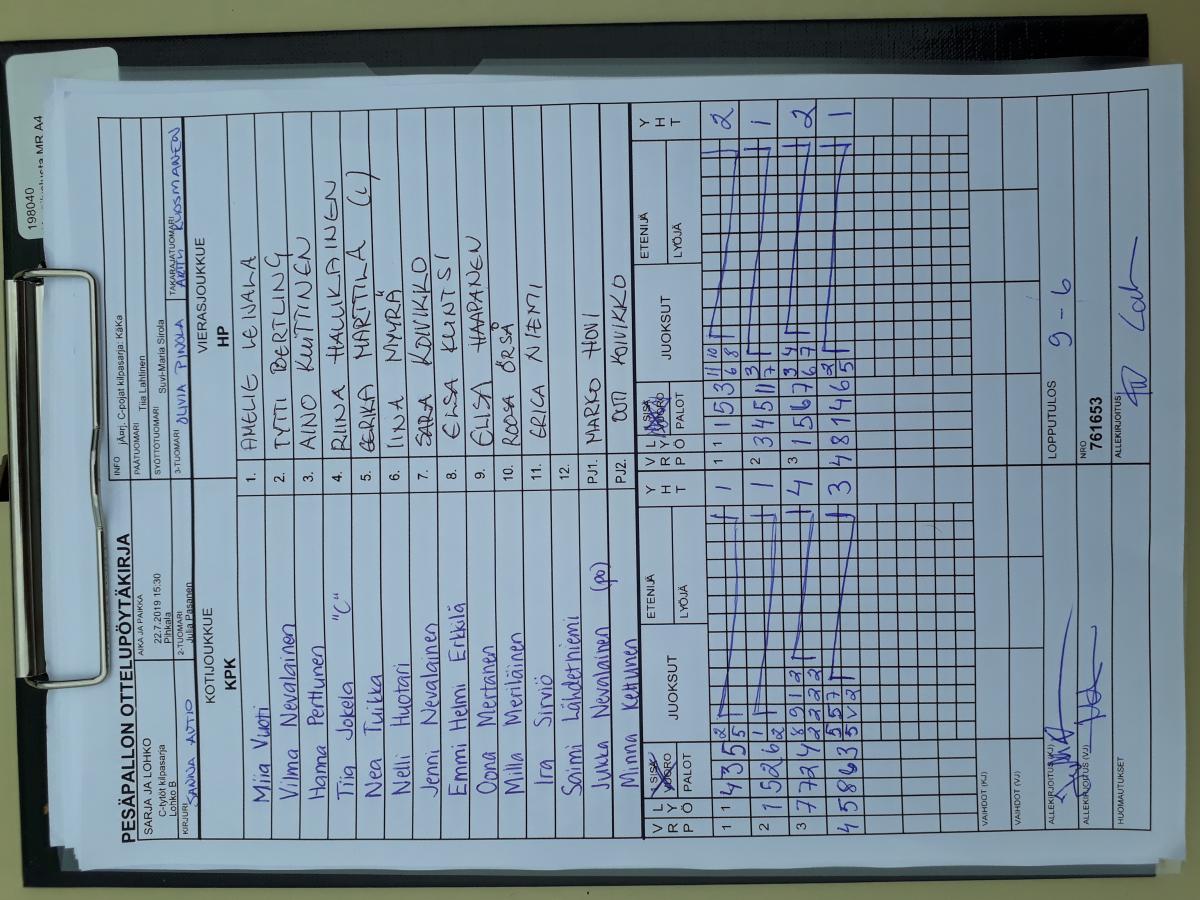 198040
MR A4
PESÄPALLON OTTELUPÖYTÄKIRJA
SARJA JA LOHKO
C-tytöt kilpasarja
Lohko B
AIKA JA PAIKKA
22.7.2019 15:30
Pihkala
INFO jÄorj. C-pojat kilpasarja: KäKa
PÄÄTUOMARI Tiia Lahtinen
SYÖTTÖTUOMARI Suvi-Maria Sirola
KIRJURI SANNA AUTIO
2-TUOMARI Julia Pasanen
3-TUOMARI OLIVIA PINOLA
TAKARAJATUOMARI ARTTU KUOSMANEN
KOTIJOUKKUE
KPK
VIERASJOUKKUE
HP
Miia Vuoti 1. AMELIE LEINALA
Vilma Nevalainen 2. TYTTI BERTLING
Hanna Perttunen 3. AINO KUITTINEN
Tiia Jokela "C" 4. RIINA HALLIKAINEN
Nea Tuikka 5. EERIKA MARTTILA (C)
Nelli Huotari 6. IINA MYYRÄ
Jenni Nevalainen 7. SARA KOIVIKKO
Emmi Helmi Erkkilä 8. ELSA KUNTSI
Oona Mertanen 9. ELISA HAAPANEN
Milla Meriläinen 10. ROOSA ÖRSÅ
Ira Sirviö 11. ERICA NIEMI
Saimi Lähdetniemi 12.
Jukka Nevalainen (po) PJ1. MARKO HOVI
Minna Kettunen PJ2. OUTI KOIVIKKO
VRP LYÖ PALOT JUOKSUT ETENIJÄ LYÖJÄ YHT
VRP LYÖ PALOT JUOKSUT ETENIJÄ LYÖJÄ YHT
1 1 4 3 5 2 5 1
1 1 1 5 3 11 10 6 8 2
2 1 5 2 6 1 2 1
2 3 4 5 11 3 7 1
3 7 7 2 4 8 9 1 2 2 2 2 2 4
3 1 5 6 7 3 4 6 7 2
4 5 8 6 3 5 5 7 5 V 2 3
4 8 1 4 6 2 5 1
VAIHDOT (KJ)
VAIHDOT (VJ)
ALLEKIRJOITUS (KJ)
LOPPUTULOS 9 - 6
ALLEKIRJOITUS (VJ)
NRO
761653
HUOMAUTUKSET
ALLEKIRJOITUS